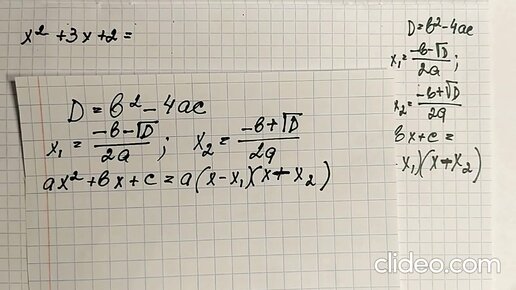 x² + 3x + 2 =
D = b² - 4ac
x₁ = (-b - √D) / 2a ; x₂ = (-b + √D) / 2a
ax² + bx + c = a(x - x₁)(x + x₂)
D = b² - 4ac
x₁ = (-b - √D) / 2a ;
x₂ = (-b + √D) / 2a
bx + c =
x₁)(x + x₂)
clideo.com